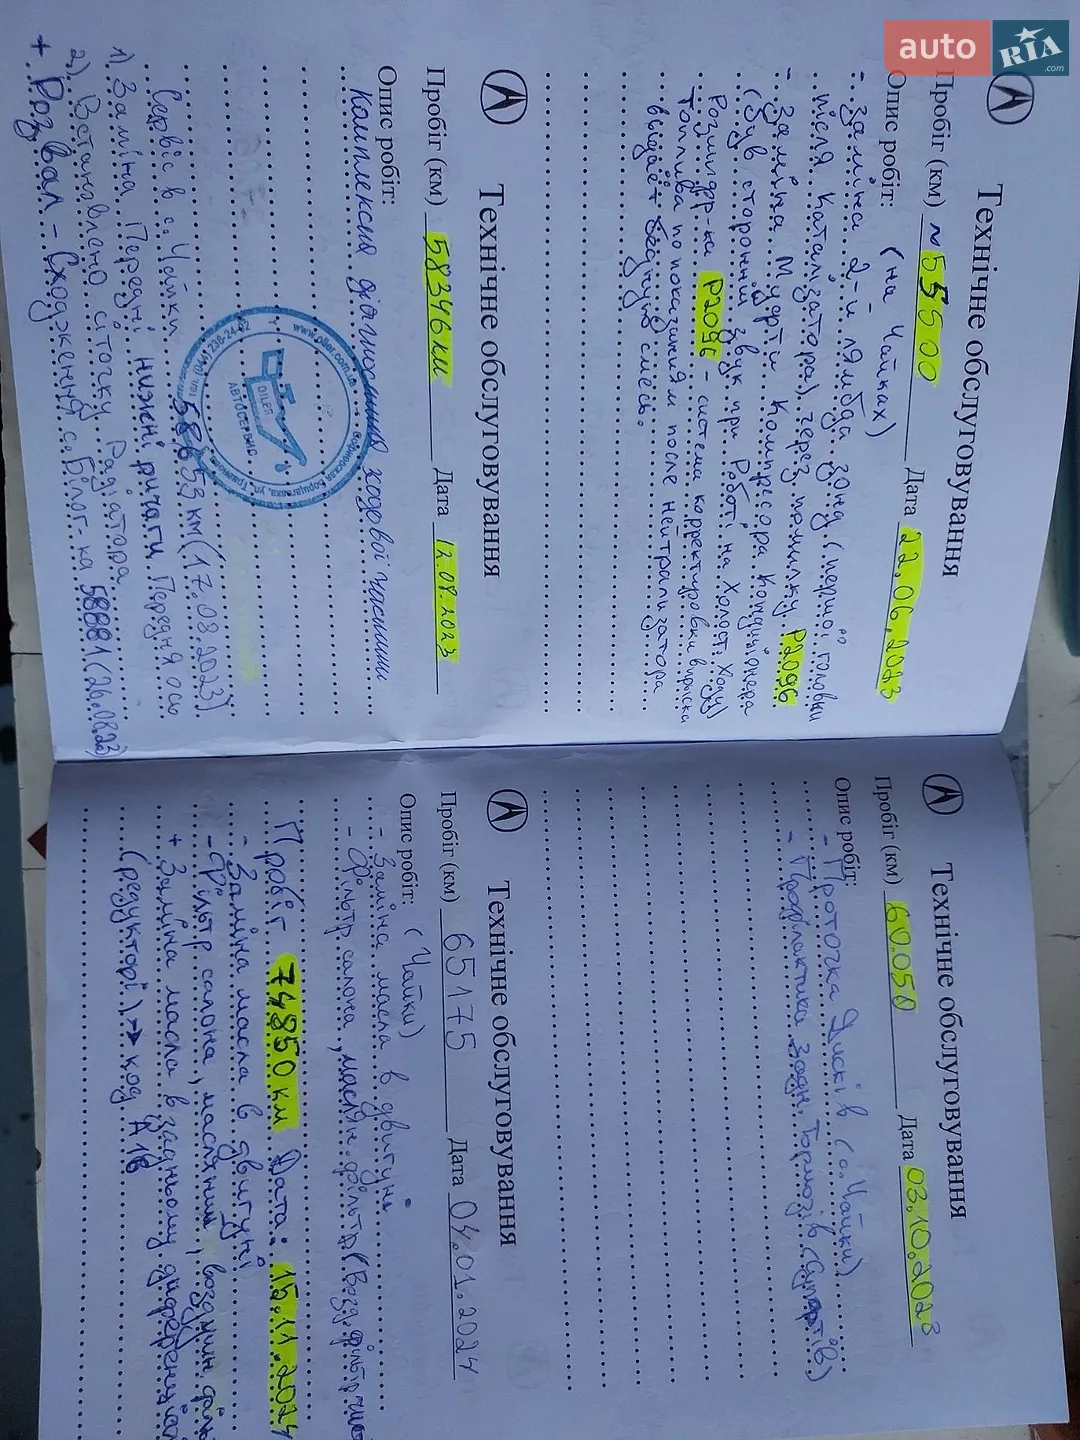 auto
RIA
.com
Технічне обслуговування
Пробіг (км) ~55500 Дата 22.06.2023
Опис робіт: (на Чайках)
- Заміна 2-й лямбда зонд (першої головки
після каталізатора), через помилку P2096
- Заміна Муфти Компресора Кондиціонера
(Був сторонній звук при роботі на Холост. Ходу)
P2096 - система корректировки впрыска
Топлива по показаниям после нейтрализатора
выдаёт бедную смесь.
Технічне обслуговування
Пробіг (км) 58346 км Дата 12.08.2023
Опис робіт:
Комплексна діагностика ходової частини
www.oiler.com.ua
ОІЛЕР
АВТОСЕРВИС
Сервіс в с. Чайки 58653 км (17.08.2023)
1) Заміна Передні нижні ричаги Передня ось
2) Встановлено сіточку Радіатора
+ Розвал - Сходження с. Білог- на 58881 (26.08.23)
Технічне обслуговування
Пробіг (км) 60.050 Дата 03.10.2023
Опис робіт:
- Проточка Дисків (с. Чайки)
- Профілактика задн. Тормозів (Супортів)
Технічне обслуговування
Пробіг (км) 65175 Дата 04.01.2024
Опис робіт: (Чайки)
- Заміна масла в двигуні
- Фільтр салона, маслян. фільтр (Возд. фільтр
Пробіг 74850 км Дата: 15.11.2024
- Заміна масла в двигуні
- Фільтр салона, масляний, воздушн.
+ Заміна масла в задньому
(редукторі) → код A1B